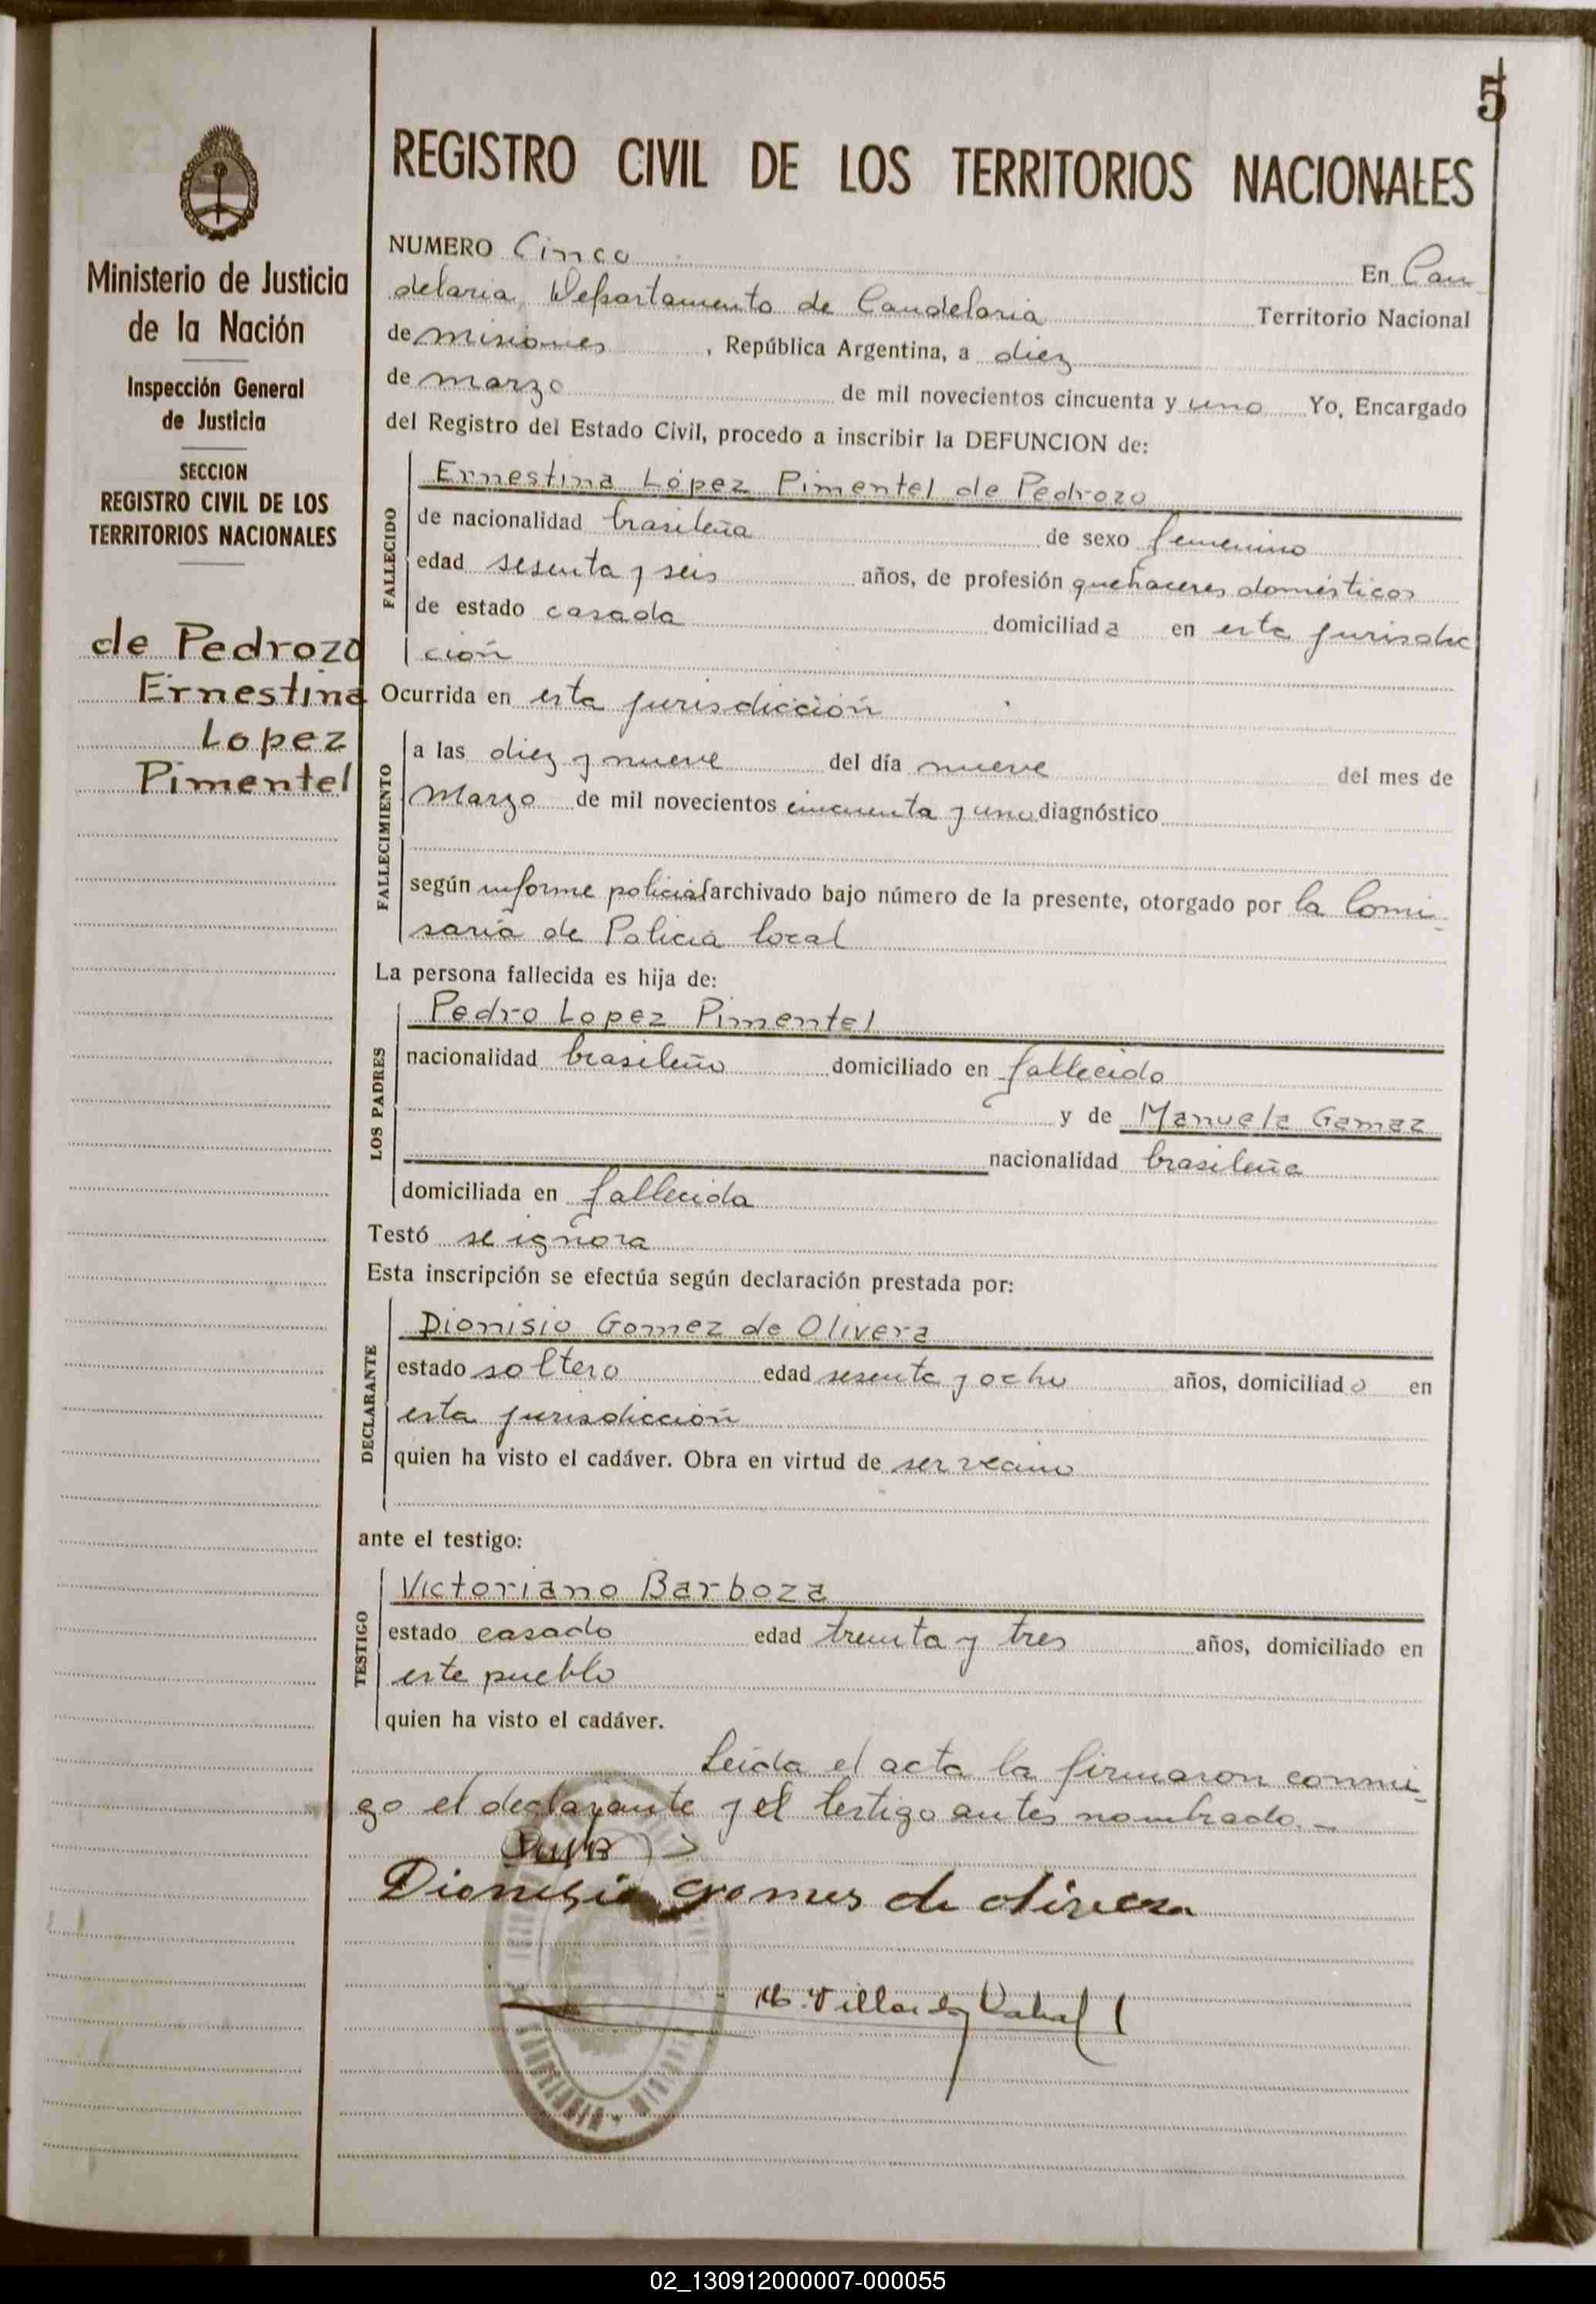 5
REGISTRO CIVIL DE LOS TERRITORIOS NACIONALES
Ministerio de Justicia
de la Nación
Inspección General
de Justicia
SECCION
REGISTRO CIVIL DE LOS
TERRITORIOS NACIONALES
de Pedrozo
Ernestina
Lopez
Pimentel
NUMERO Cinco En Can
delaria, Departamento de Candelaria Territorio Nacional
de misiones , República Argentina, a diez
de marzo de mil novecientos cincuenta y uno Yo, Encargado
del Registro del Estado Civil, procedo a inscribir la DEFUNCION de:
FALLECIDO
Ernestina López Pimentel de Pedrozo
de nacionalidad brasileña de sexo femenino
edad sesenta y seis años, de profesión quehaceres domésticos
de estado casada domiciliada en esta jurisdic
ción
Ocurrida en esta jurisdicción
FALLECIMIENTO
a las diez y nueve del día nueve del mes de
Marzo de mil novecientos cincuenta y uno diagnóstico
según informe policial archivado bajo número de la presente, otorgado por la Comi-
saría de Policía local
La persona fallecida es hija de:
LOS PADRES
Pedro Lopez Pimentel
nacionalidad brasileño domiciliado en fallecido
y de Manuela Gamaz
nacionalidad brasileña
domiciliada en fallecida
Testó se ignora
Esta inscripción se efectúa según declaración prestada por:
DECLARANTE
Dionisio Gomez de Olivera
estado soltero edad sesenta y ocho años, domiciliado en
esta jurisdicción
quien ha visto el cadáver. Obra en virtud de ser vecino
ante el testigo:
TESTIGO
Victoriano Barboza
estado casado edad treinta y tres años, domiciliado en
este pueblo
quien ha visto el cadáver.
Leída el acta la firmaron conmi-
go el declarante y el testigo antes nombrado.-
Dionisio gomes de olivera
02_130912000007-000055